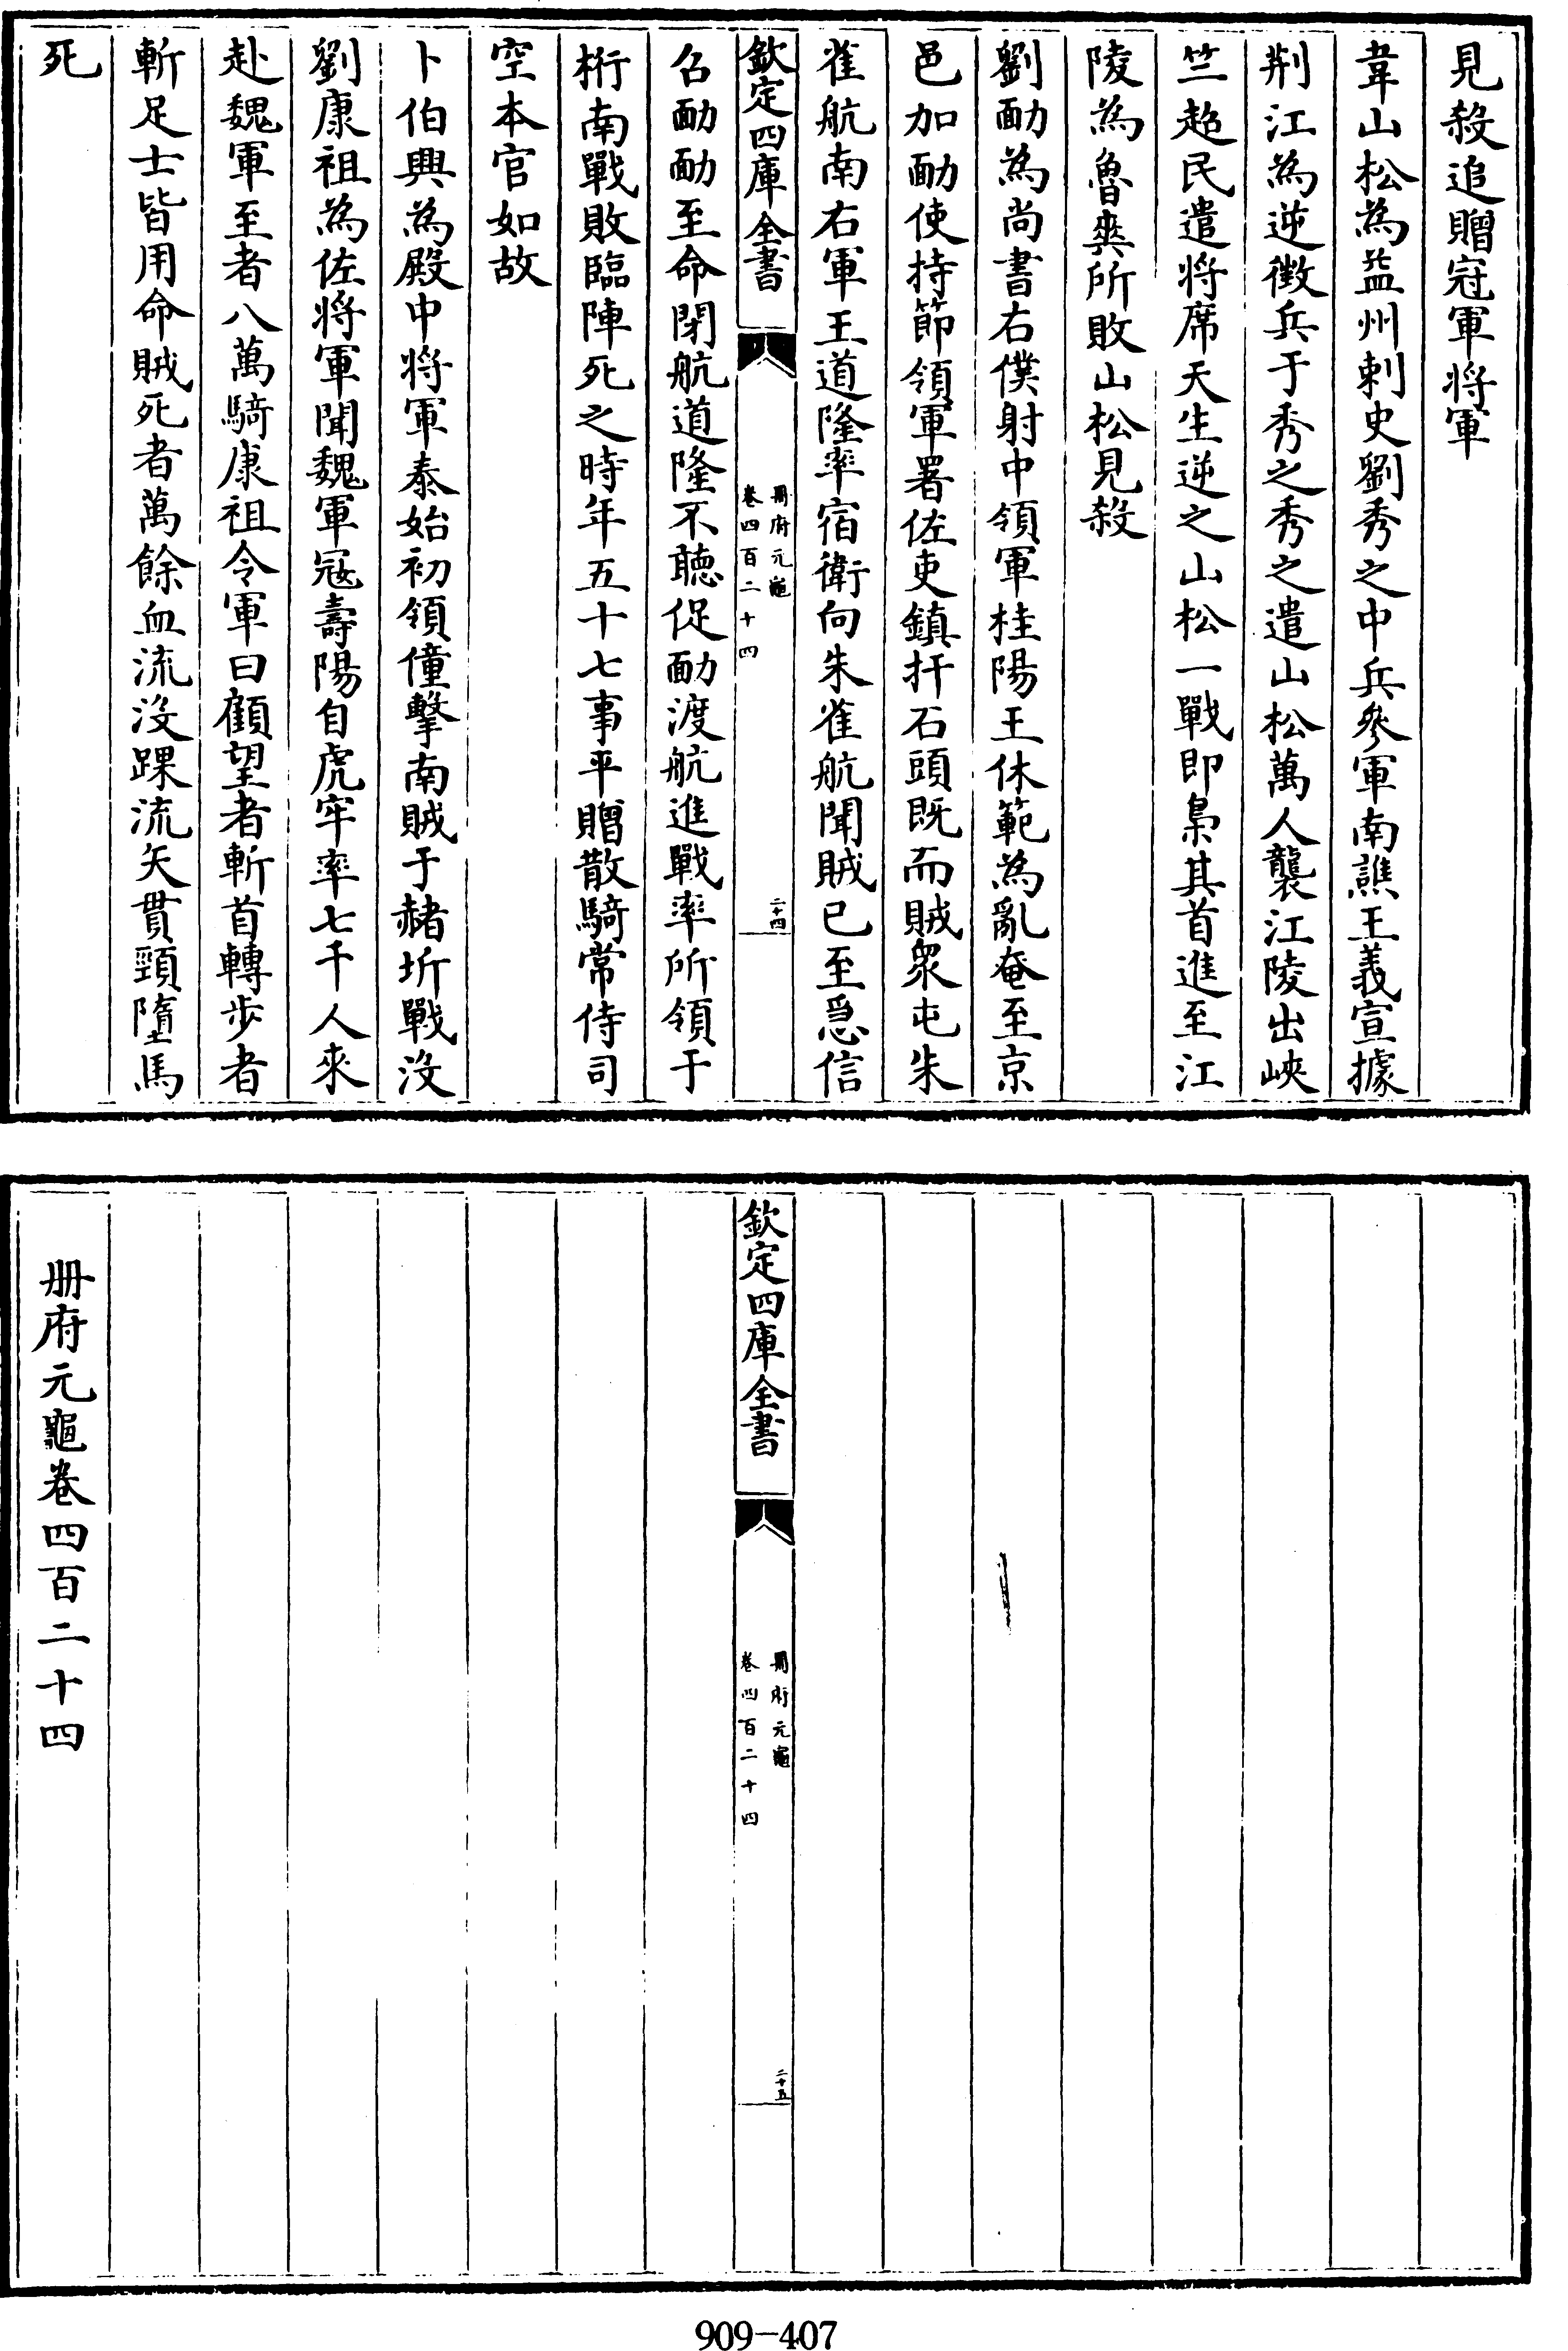 見殺追贈冠軍将軍
韋山松為益州刺史劉秀之中兵叅軍南譙王義宣據
荆江為逆徴兵于秀之秀之遣山松萬人襲江陵出峽
竺超民遣将席天生逆之山松一戰即梟其首進至江
陵為魯爽所敗山松見殺
劉勔為尚書右僕射中領軍桂陽王休範為亂奄至京
邑加勔使持節領軍署佐吏鎮扞石頭既而賊衆屯朱
雀航南右軍王道隆率宿衛向朱雀航聞賊已至急信
欽定四庫全書
冊府元龜
卷四百二十四
二十四
召勔勔至命閉航道隆不聽促勔渡航進戰率所領于
桁南戰敗臨陣死之時年五十七事平贈散騎常侍司
空本官如故
卜伯興為殿中将軍泰始初領僮擊南賊于赭圻戰沒
劉康祖為佐将軍聞魏軍寇壽陽自虎牢率七千人來
赴魏軍至者八萬騎康祖令軍曰顧望者斬首轉步者
斬足士皆用命賊死者萬餘血流沒踝流矢貫頸墮馬
死
欽定四庫全書
冊府元龜
卷四百二十四
二十五
冊府元龜卷四百二十四
909-407